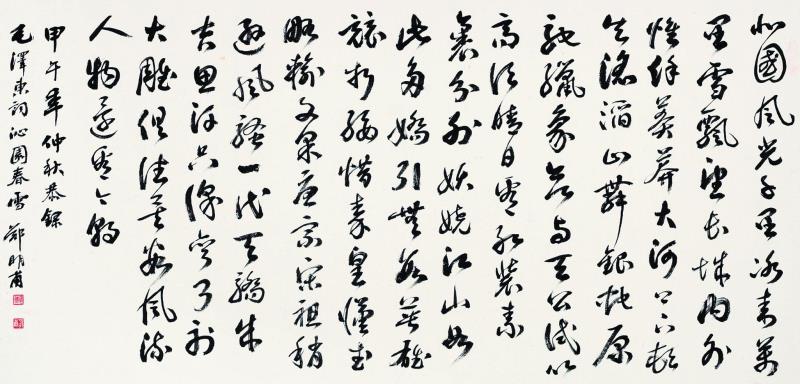 北國風光千里冰封萬
里雪飄望長城內外
惟餘莽莽大河上下頓
失滔滔山舞銀蛇原
馳蠟象欲與天公試比
高須晴日看紅裝素
裹分外妖嬈江山如
此多嬌引無數英雄
競折腰惜秦皇漢武
略輸文采唐宗宋祖稍
遜風騷一代天驕成
吉思汗只識彎弓射
大雕俱往矣數風流
人物還看今朝
甲午年仲秋恭錄
毛澤東詞沁園春雪